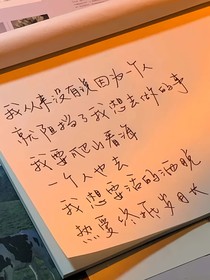 我从来没有说因为一个人
就阻挡了我想去做的事
我要爬山看海
一个人也去
我想要活的洒脱
热爱 岁月长